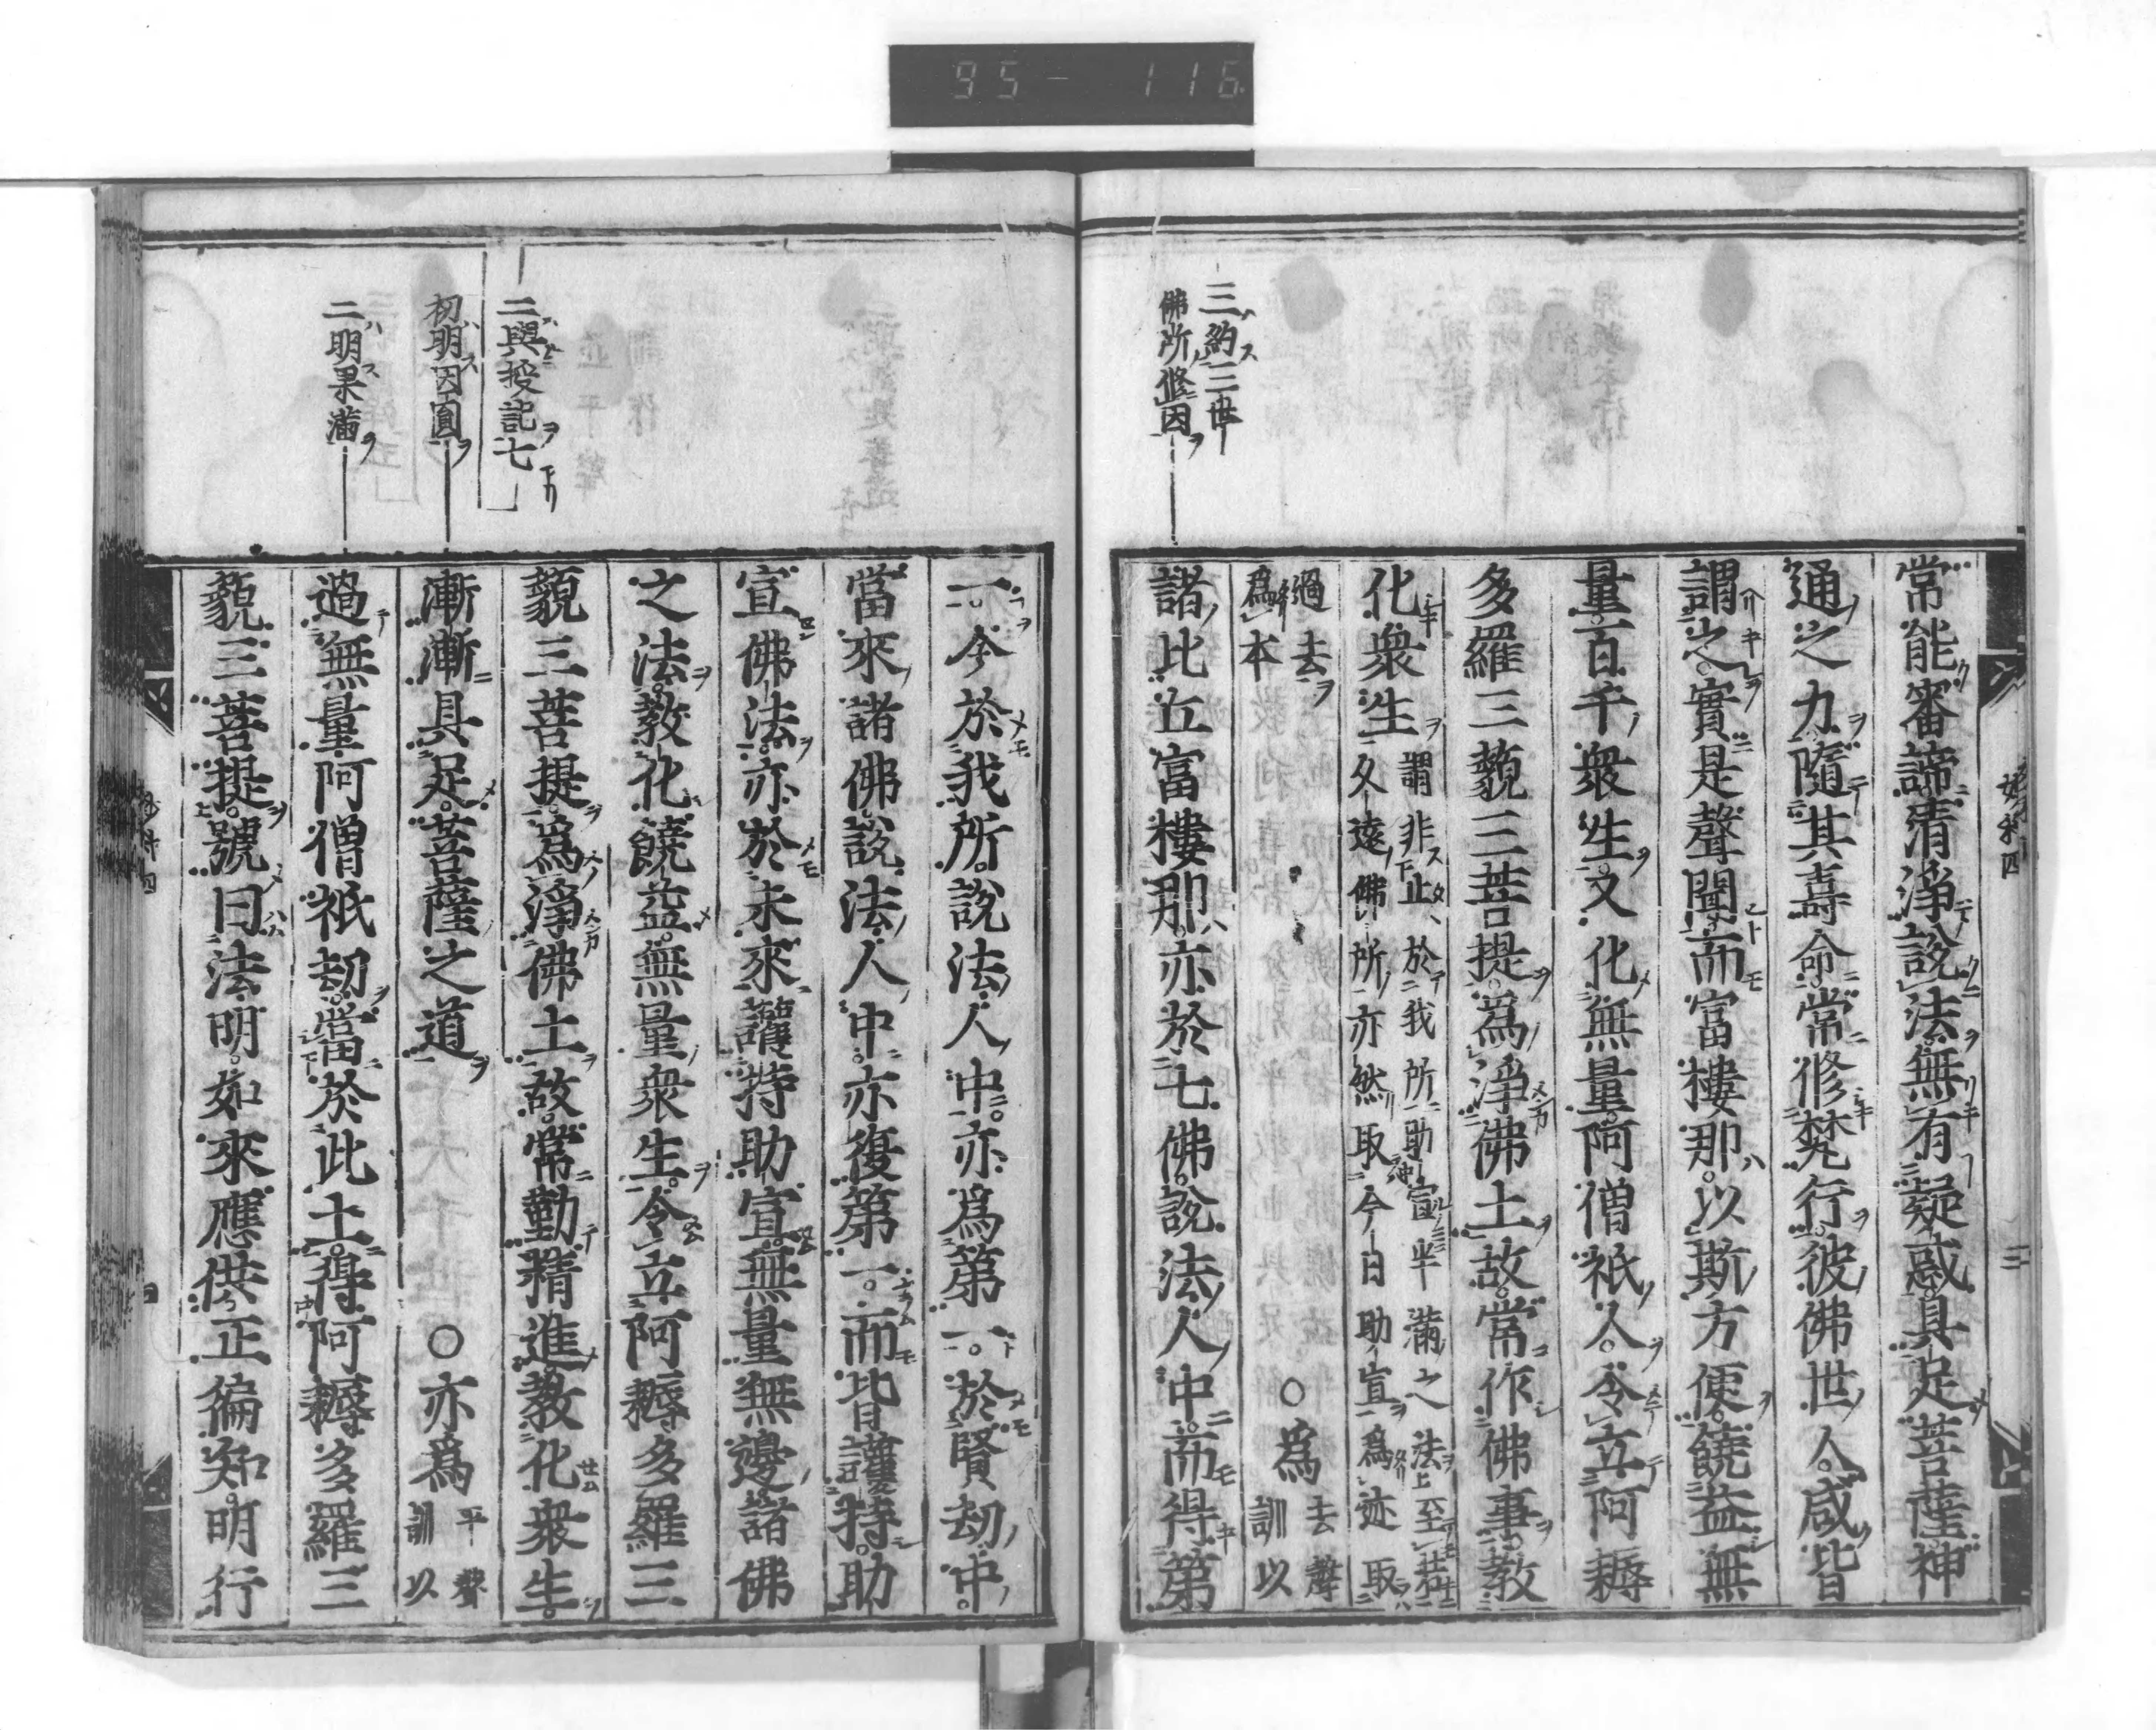 95-116
三約三世
佛所修因
常能審諦清淨說法無有疑惑具足菩薩神
通之力隨其壽命常修梵行彼佛世人咸皆
謂之實是聲聞而富樓那以斯方便饒益無
量百千衆生又化無量阿僧祇人令立阿耨
多羅三藐三菩提爲淨佛土故常作佛事教
化衆生
謂非止於我所助宣半滿之法上至若
久遠佛所亦然取今日助宣爲迹取
過去
爲本
○爲
去聲
訓以
諸比丘富樓那亦於七佛說法人中而得第
二與授記七
初明因圓
二明果滿
一今於我所說法人中亦爲第一於賢劫中
當來諸佛說法人中亦復第一而皆護持助
宣佛法亦於未來護持助宣無量無邊諸佛
之法教化饒益無量衆生令立阿耨多羅三
藐三菩提爲淨佛土故常勤精進教化衆生
漸漸具足菩薩之道
○亦爲
平聲
訓以
過無量阿僧祇劫當於此土得阿耨多羅三
藐三菩提號曰法明如來應供正徧知明行